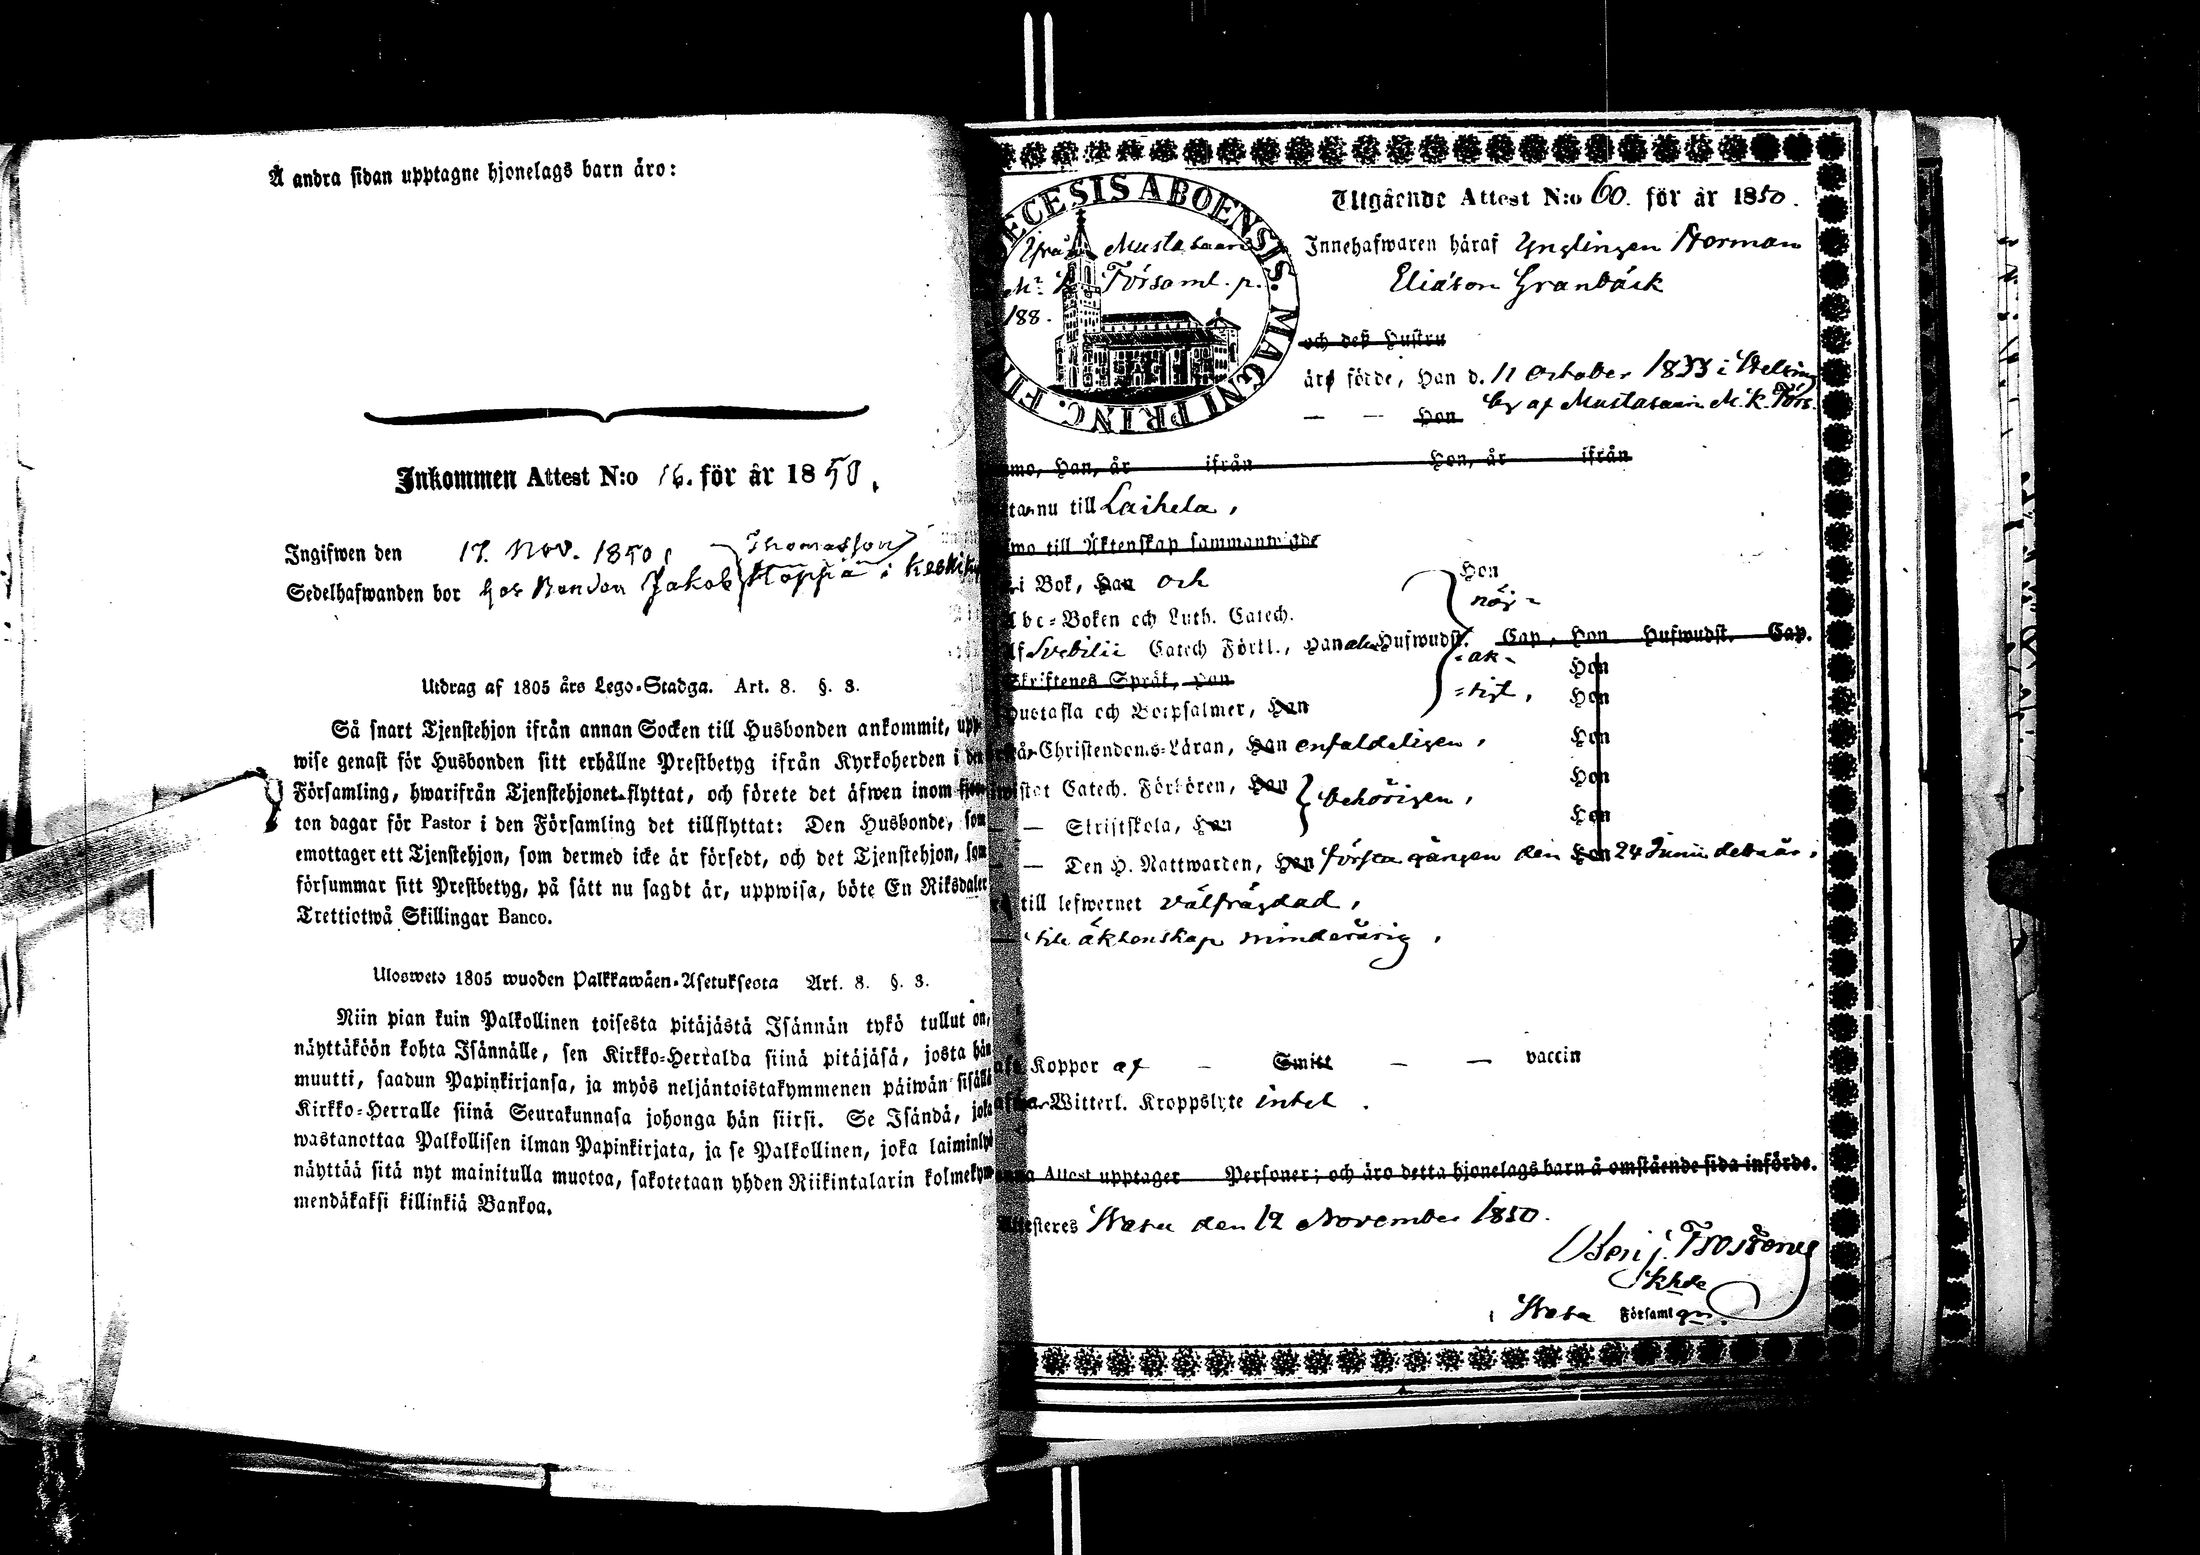 Å andra sidan upptagne hjonelags barn äro:
Inkommen Attest N:o 16. för år 1850.
Ingifwen den 17. Nov. 1850.
Thomasson
Sedelhafwanden bor hos Bonden Jakob i
Utdrag af 1805 års Lego-Stadga. Art. 8. §. 3.
Så snart Tjenstehjon ifrån annan Socken till Husbonden ankommit, upp-
wise genast för Husbonden sitt erhållne Prestbetyg ifrån Kyrkoherden i den
Församling, hwarifrån Tjenstehjonet flyttat, och förete det äfwen inom fjor-
ton dagar för Pastor i den Församling det tillflyttat: Den Husbonde, som
emottager ett Tjenstehjon, som dermed icke är försedt, och det Tjenstehjon, som
försummar sitt Prestbetyg, på sätt nu sagdt är, uppwisa, böte En Riksdaler
Trettiotwå Skillingar Banco.
Ulosweto 1805 wuoden Palkkawäen-Asetuksesta Art. 8. §. 3.
Niin pian kuin Palkollinen toisesta pitäjästä Isännän tykö tullut on,
näyttäköön kohta Isännälle, sen Kirkko-Herralda siinä pitäjäsä, josta hän
muutti, saadun Papinkirjansa, ja myös neljäntoistakymmenen päiwän sisällä
Kirkko-Herralle siinä Seurakunnasa johonga hän siirsi. Se Isändä, joka
wastanottaa Palkollisen ilman Papinkirjata, ja se Palkollinen, joka laiminlyö
näyttää sitä nyt mainitulla muotoa, sakotetaan yhden Riikintalarin kolmekym-
mendäkaksi killinkiä Bankoa.
DIOECESIS ABOENSIS. MAGNI PRINC. FIN
Ifrån Mustasaari
Församl. p.
188.
Utgående Attest N:o 60. för år 1850.
Innehafwaren häraf Ynglingen Herman
Eliasson Granbäck
och deß Hustru
äro födde, Han d. 11 October 1833 i Helsing
by af Mustasaari M. K. Förs.
— — Hon
Han, år ifrån Hon, år ifrån
nu till Laihela,
till Äktenskap sammanwigde
i Bok, Han och Hon
Abc-Boken och Luth. Catech. nöj-
af Svebilii Catech Förkl., Han alla Hufwudst. Cap, Hon Hufwudst. Cap.
Skriftenes Språk, Han -ak- Hon
Hustafla och Botpsalmer, Han -tigt, Hon
Christendoms-Läran, Han enfaldeligen, Hon
Catech. Förhören, Han behörigen, Hon
— Skriftskola, Han Hon
— Den H. Nattwarden, Han första gången den Hon 24 Junii detta år,
till lefwernet välfrägdad,
— till äktenskap minderårig,
Koppor af - Smitt - — vaccin
Witterl. Kroppslyte intet.
Attest upptager Personer; och äro detta hjonelags barn å omstående sida införde.
Attesteras Wasa den 12 November 1850.
Benj.
Khde
i Wasa Församl